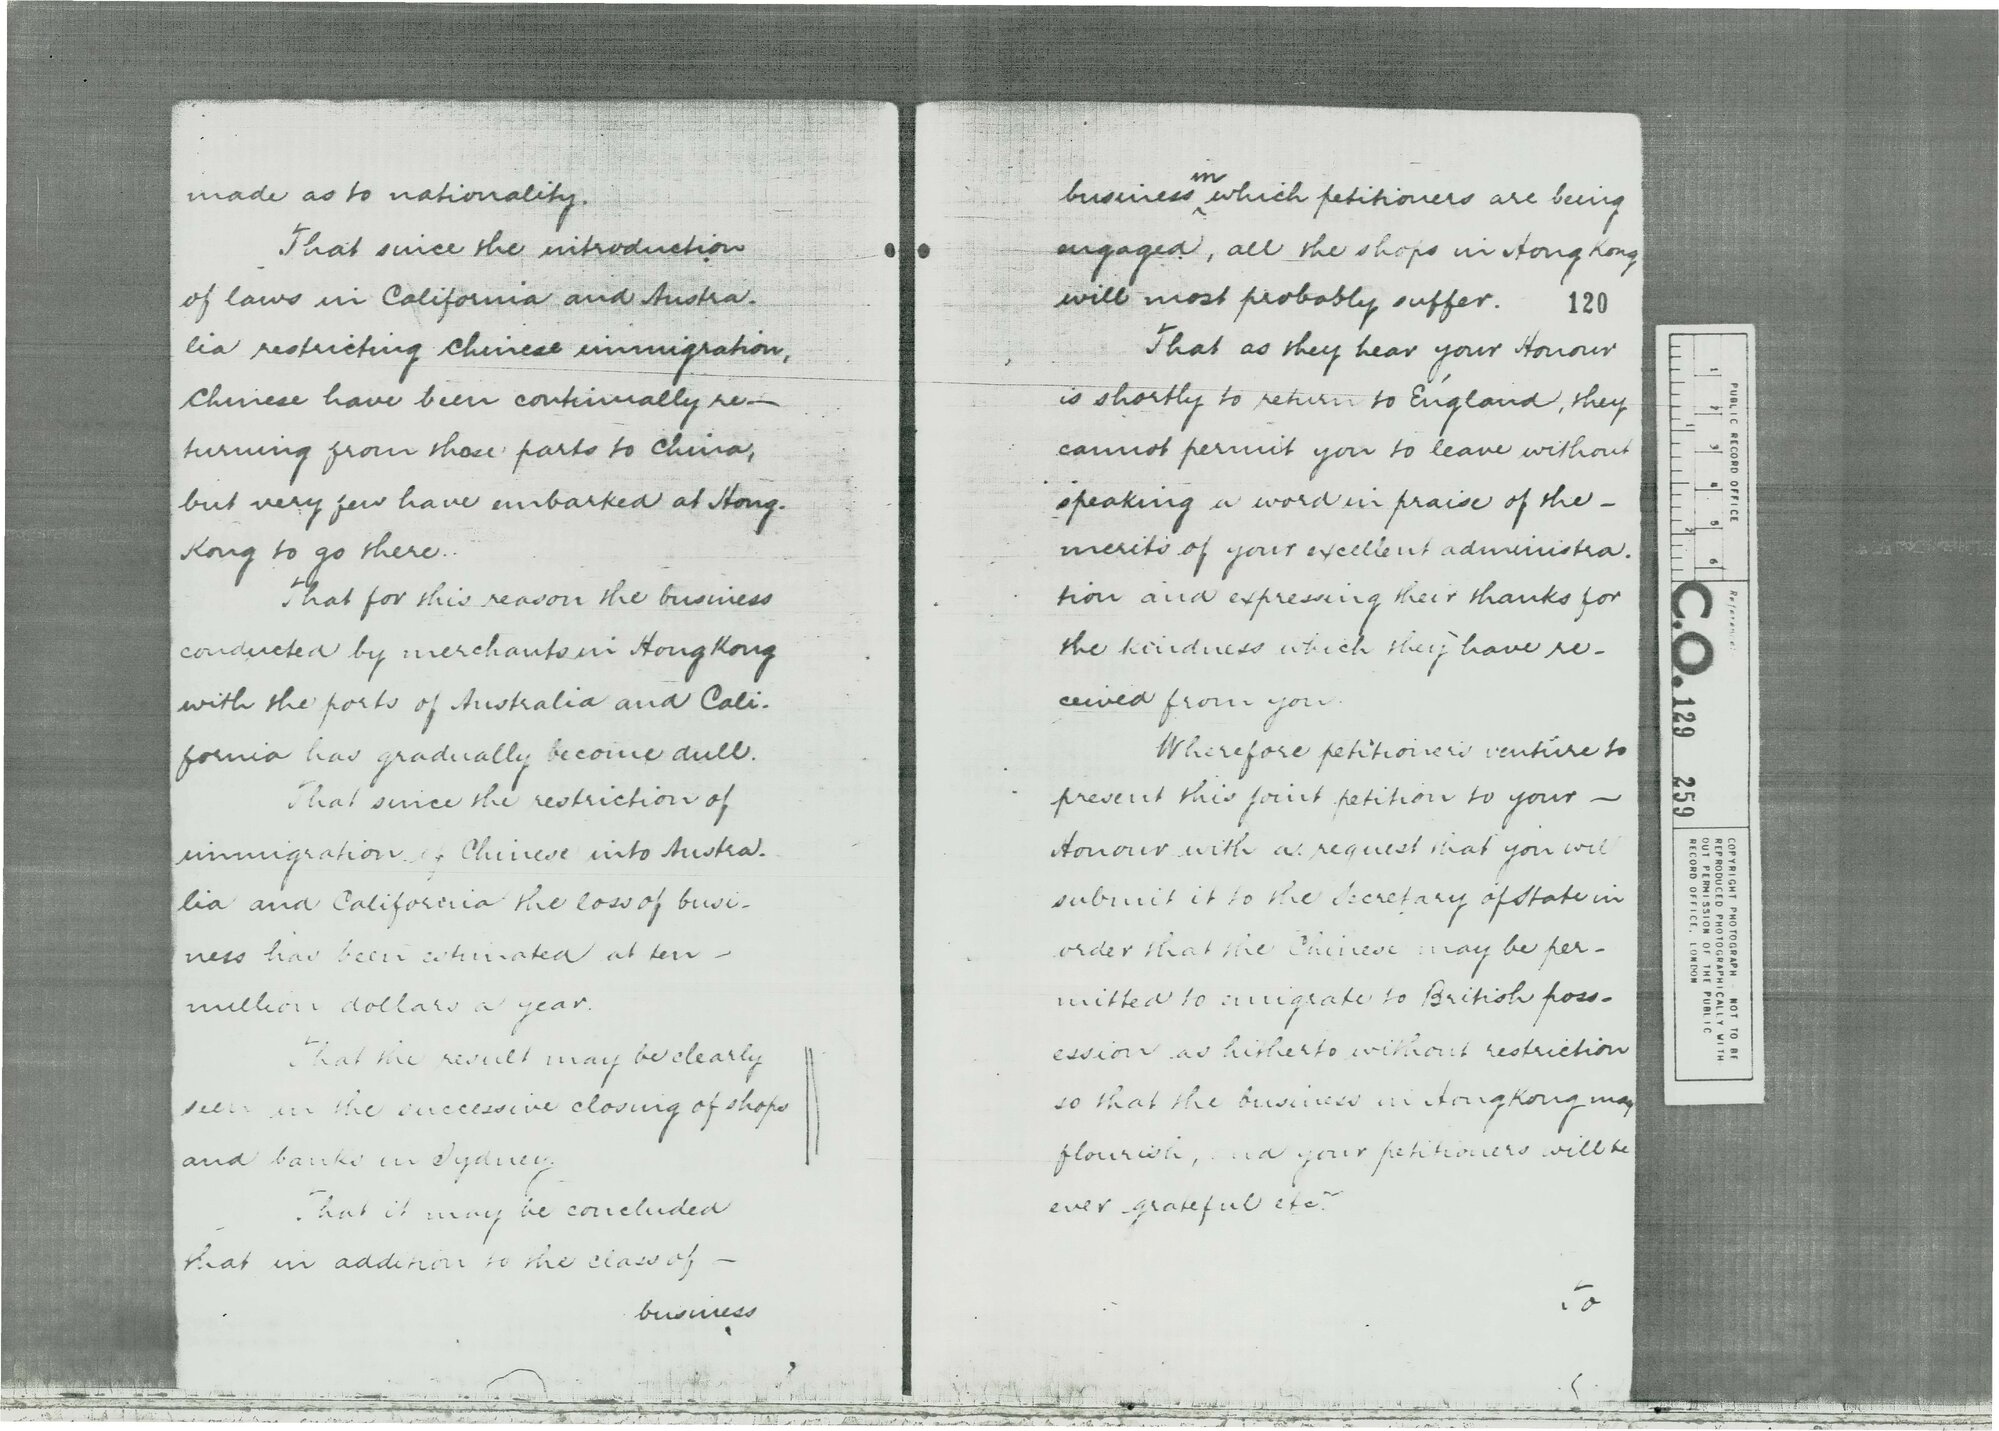 made as to nationality.
That since the introduction
of laws in California and Austra-
lia restricting Chinese immigration,
Chinese have been continually re-
turning from those parts to China,
but very few have embarked at Hong-
Kong to go there.
That for this reason the business
conducted by merchants in HongKong
with the ports of Australia and Cali-
fornia has gradually become dull.
That since the restriction of
immigration of Chinese into Austra-
lia and California the loss of busi-
ness has been estimated at ten -
million dollars a year.
That the result may be clearly
seen in the successive closing of shops
and banks in Sydney.
That it may be concluded
that in addition to the class of -
business
business in which petitioners are being
engaged, all the shops in HongKong
will most probably suffer.
120
That as they hear your Honour
is shortly to return to England, they
cannot permit you to leave without
speaking a word in praise of the -
merits of your excellent administra-
tion and expressing their thanks for
the kindness which they have re-
ceived from you.
Wherefore petitioners venture to
present this joint petition to your -
Honour with a request that you will
submit it to the Secretary of State in
order that the Chinese may be per-
mitted to emigrate to British poss-
ession as hitherto without restriction
so that the business in HongKong may
flourish, and your petitioners will be
ever grateful etc.
To
PUBLIC RECORD OFFICE
1 2 3 4 5 6
1 2
Reference:
C.O. 129 259
COPYRIGHT PHOTOGRAPH - NOT TO BE
REPRODUCED PHOTOGRAPHICALLY WITH-
OUT PERMISSION OF THE PUBLIC
RECORD OFFICE, LONDON